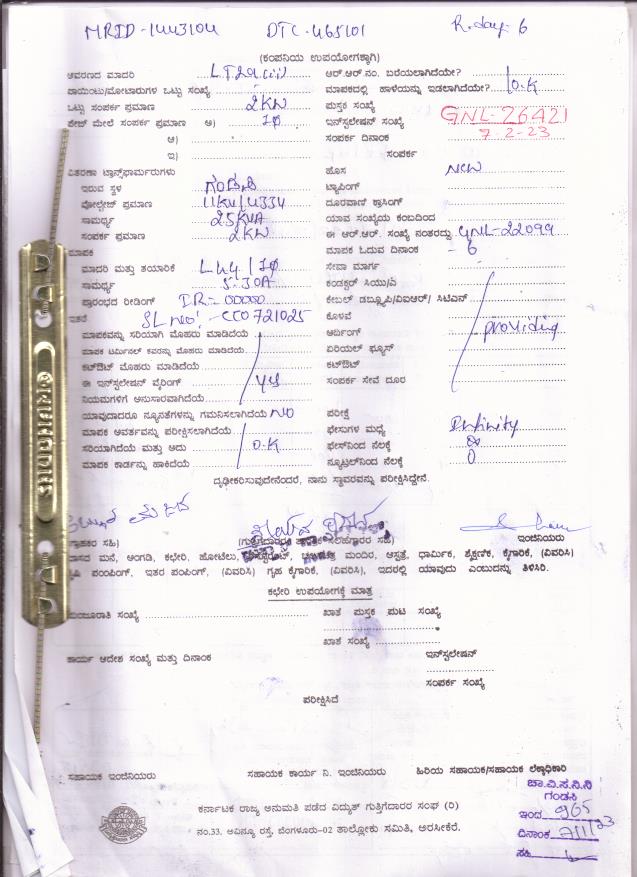 MRID-1443104 DTC-465101 R.day-6
(ಕಂಪನಿಯ ಉಪಯೋಗಕ್ಕಾಗಿ)
ಆವರಣದ ಮಾದರಿ LT2a(ii) ಆರ್.ಆರ್ ನಂ. ಬರೆಯಲಾಗಿದೆಯೇ?
ಪಾಯಿಂಟು/ಮೋಟಾರುಗಳ ಒಟ್ಟು ಸಂಖ್ಯೆ ಮಾಪಕದಲ್ಲಿ ಹಾಳೆಯನ್ನು ಇಡಲಾಗಿದೆಯೇ? O.K
ಒಟ್ಟು ಸಂಪರ್ಕ ಪ್ರಮಾಣ 2KW ಪುಸ್ತಕ ಸಂಖ್ಯೆ
ಫೇಜ್ ಮೇಲೆ ಸಂಪರ್ಕ ಪ್ರಮಾಣ ಅ) 1Ø ಇನ್‌ಸ್ಟಲೇಷನ್ ಸಂಖ್ಯೆ GNL-26421
ಆ) ಸಂಪರ್ಕ ದಿನಾಂಕ 7-2-23
ಇ) ಸಂಪರ್ಕ
ವಿತರಣಾ ಟ್ರಾನ್ಸ್‌ಫಾರ್ಮರುಗಳು ಹೊಸ NEW
ಇರುವ ಸ್ಥಳ ಟ್ಯಾಪಿಂಗ್
ವೋಲ್ಟೇಜ್ ಪ್ರಮಾಣ 11KV/433V ದೂರವಾಣಿ ಕ್ರಾಸಿಂಗ್
ಸಾಮರ್ಥ್ಯ 25KVA ಯಾವ ಸಂಖ್ಯೆಯ ಕಂಬದಿಂದ
ಸಂಪರ್ಕ ಪ್ರಮಾಣ 2KW ಈ ಆರ್.ಆರ್. ಸಂಖ್ಯೆ ನಂತರದ್ದು GNL-22099
ಮಾಪಕ ಮಾಪಕ ಓದುವ ದಿನಾಂಕ - 6
ಮಾದರಿ ಮತ್ತು ತಯಾರಿಕೆ L&T/1Ø ಸೇವಾ ಮಾರ್ಗ
ಸಾಮರ್ಥ್ಯ 5-30A ಕಂಡಕ್ಟರ್ ಸಿಯು/ಎ
ಪ್ರಾರಂಭದ ರೀಡಿಂಗ್ IR=00000 ಕೇಬಲ್ ಡಬ್ಲ್ಯೂಪಿ/ವಿಐಆರ್/ ಸಿಟಿಎಸ್
ಇತರೆ SL NO:-CCO721025 ಕೊಳವೆ
ಮಾಪಕವನ್ನು ಸರಿಯಾಗಿ ಮೊಹರು ಮಾಡಿದೆಯೆ ಅರ್ದಿಂಗ್ providing
ಮಾಪಕ ಟರ್ಮಿನಲ್ ಕವರನ್ನು ಮೊಹರು ಮಾಡಿದೆಯೆ ಏರಿಯಲ್ ಫ್ಯೂಸ್
ಕಟ್‌ಔಟ್ ಮೊಹರು ಮಾಡಿದೆಯೆ ಕಟ್‌ಔಟ್
ಈ ಇನ್‌ಸ್ಟಲೇಷನ್ ವೈರಿಂಗ್ yes ಸಂಪರ್ಕ ಸೇವೆ ದೂರ
ನಿಯಮಗಳಿಗೆ ಅನುಸಾರವಾಗಿದೆಯೆ
ಯಾವುದಾದರೂ ನ್ಯೂನತೆಗಳನ್ನು ಗಮನಿಸಲಾಗಿದೆಯೆ NO ಪರೀಕ್ಷೆ
ಮಾಪಕ ಆವರ್ತವನ್ನು ಪರೀಕ್ಷಿಸಲಾಗಿದೆಯೆ ಫೇಸುಗಳ ಮಧ್ಯೆ Infinity
ಸರಿಯಾಗಿದೆಯೆ ಮತ್ತು ಅದು O.K ಫೇಸ್‌ನಿಂದ ನೆಲಕ್ಕೆ ∞
ಮಾಪಕ ಕಾರ್ಡನ್ನು ಹಾಕಿದೆಯೆ ನ್ಯೂಟ್ರಲ್‌ನಿಂದ ನೆಲಕ್ಕೆ 0
ದೃಢೀಕರಿಸುವುದೇನೆಂದರೆ, ನಾನು ಸ್ಥಾವರವನ್ನು ಪರೀಕ್ಷಿಸಿದ್ದೇನೆ.
ಗ್ರಾಹಕರ ಸಹಿ) (ಗುತ್ತಿಗೆದಾರರ ಸಹಿ) ಇಂಜಿನಿಯರು
ವಾಸದ ಮನೆ, ಅಂಗಡಿ, ಕಛೇರಿ, ಹೋಟೆಲು, ಮಂದಿರ, ಆಸ್ಪತ್ರೆ, ಧಾರ್ಮಿಕ, ಶೈಕ್ಷಣಿಕ, ಕೈಗಾರಿಕೆ, (ವಿವರಿಸಿ)
ಕೃಷಿ ಪಂಪಿಂಗ್, ಇತರ ಪಂಪಿಂಗ್, (ವಿವರಿಸಿ) ಗೃಹ ಕೈಗಾರಿಕೆ, (ವಿವರಿಸಿ), ಇದರಲ್ಲಿ ಯಾವುದು ಎಂಬುದನ್ನು ತಿಳಿಸಿರಿ.
ಕಛೇರಿ ಉಪಯೋಗಕ್ಕೆ ಮಾತ್ರ
ಮಂಜೂರಾತಿ ಸಂಖ್ಯೆ ಖಾತೆ ಪುಸ್ತಕ ಪುಟ ಸಂಖ್ಯೆ
ಖಾತೆ ಸಂಖ್ಯೆ
ಕಾರ್ಯ ಆದೇಶ ಸಂಖ್ಯೆ ಮತ್ತು ದಿನಾಂಕ ಇನ್‌ಸ್ಟಲೇಷನ್
ಸಂಪರ್ಕ ಸಂಖ್ಯೆ
ಪರೀಕ್ಷಿಸಿದೆ
ಸಹಾಯಕ ಇಂಜಿನಿಯರು ಸಹಾಯಕ ಕಾರ್ಯ ನಿ. ಇಂಜಿನಿಯರು ಹಿರಿಯ ಸಹಾಯಕ/ಸಹಾಯಕ ಲೆಕ್ಕಾಧಿಕಾರಿ
ಚಾ.ವಿ.ಸ.ನಿ.ನಿ
ಗಂಡಸಿ
ಕರ್ನಾಟಕ ರಾಜ್ಯ ಅನುಮತಿ ಪಡೆದ ವಿದ್ಯುತ್ ಗುತ್ತಿಗೆದಾರರ ಸಂಘ (ರಿ) ಇಂದ 965
ನಂ.33. ಅವಿನ್ಯೂ ರಸ್ತೆ, ಬೆಂಗಳೂರು-02 ತಾಲ್ಲೋಕು ಸಮಿತಿ, ಅರಸೀಕೆರೆ. ದಿನಾಂಕ
ಸಹಿ